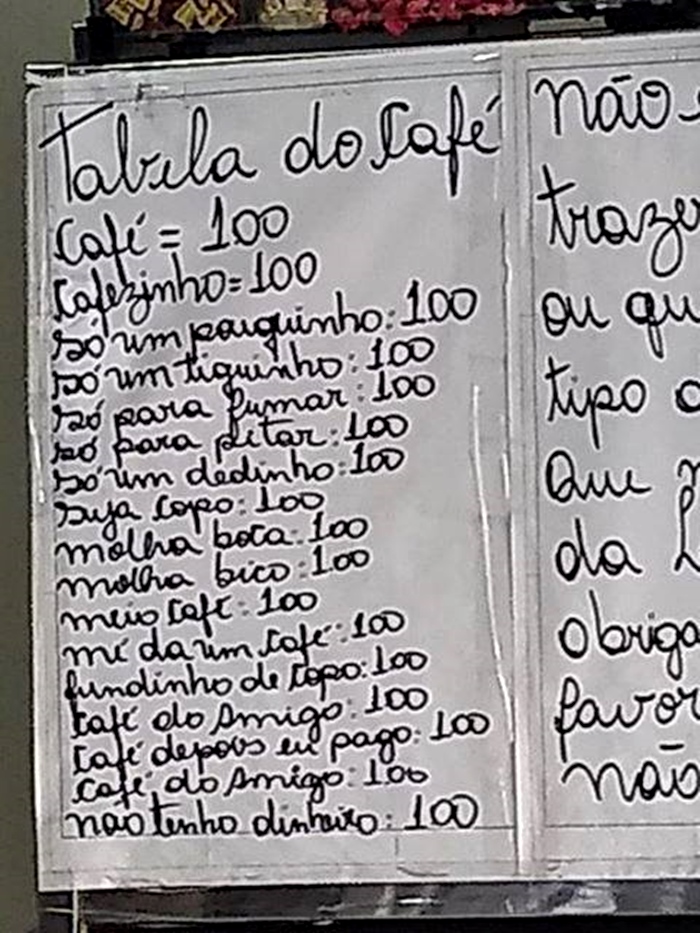 Tabela do Café
Café = 100
Cafezinho = 100
só um pouguinho: 100
só um tiguinho: 100
só para fumar: 100
só para pitar: 100
só um dedinho: 100
suja copo: 100
molha boca: 100
molha bico: 100
meio Café: 100
mí da um Café: 100
fundinho de copo: 100
Café do Amigo: 100
Café depois eu pago: 100
café do Amigo: 100
não tenho dinheiro: 100
não
traze
ou qu
tipo
Que
da
obriga
favor
não